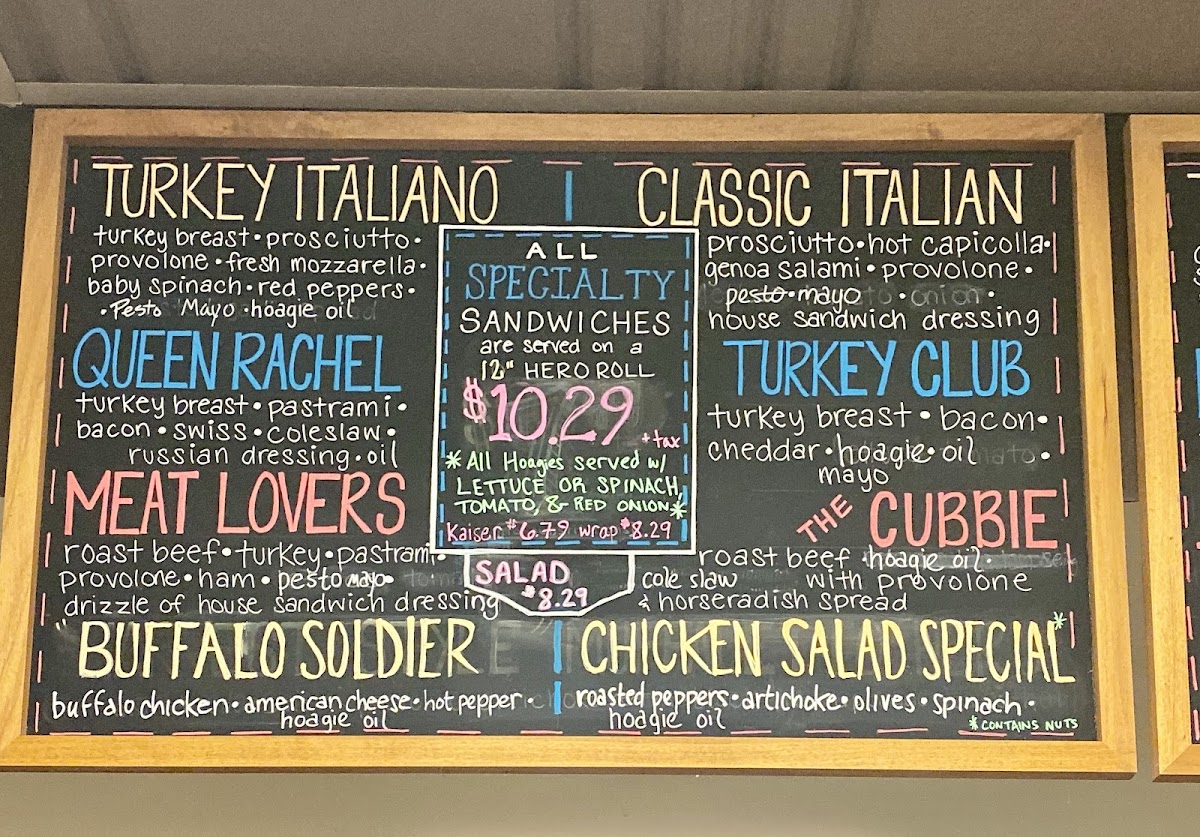 TURKEY ITALIANO
turkey breast • prosciutto •
provolone • fresh mozzarella •
baby spinach • red peppers •
• Pesto Mayo • hoagie oil
QUEEN RACHEL
turkey breast • pastrami •
bacon • swiss • coleslaw •
russian dressing • oil
MEAT LOVERS
roast beef • turkey • pastrami •
provolone • ham • pesto mayo •
drizzle of house sandwich dressing
"BUFFALO SOLDIER
buffalo chicken • american cheese • hot pepper •
hoagie oil
ALL
SPECIALTY
SANDWICHES
are served on a
12" HERO ROLL
$10.29 + tax
*All Hoagies served w/
LETTUCE OR SPINACH,
TOMATO, & RED ONION*
Kaiser $6.79 wrap $8.29
SALAD
$8.29
CLASSIC ITALIAN
prosciutto • hot capicolla •
genoa salami • provolone •
pesto • mayo • onion •
house sandwich dressing
TURKEY CLUB
turkey breast • bacon •
cheddar • hoagie • oil •
mayo
THE CUBBIE
roast beef hoagie oil •
cole slaw with provolone
& horseradish spread
CHICKEN SALAD SPECIAL*
roasted peppers • artichoke • olives • spinach •
hoagie oil
*CONTAINS NUTS